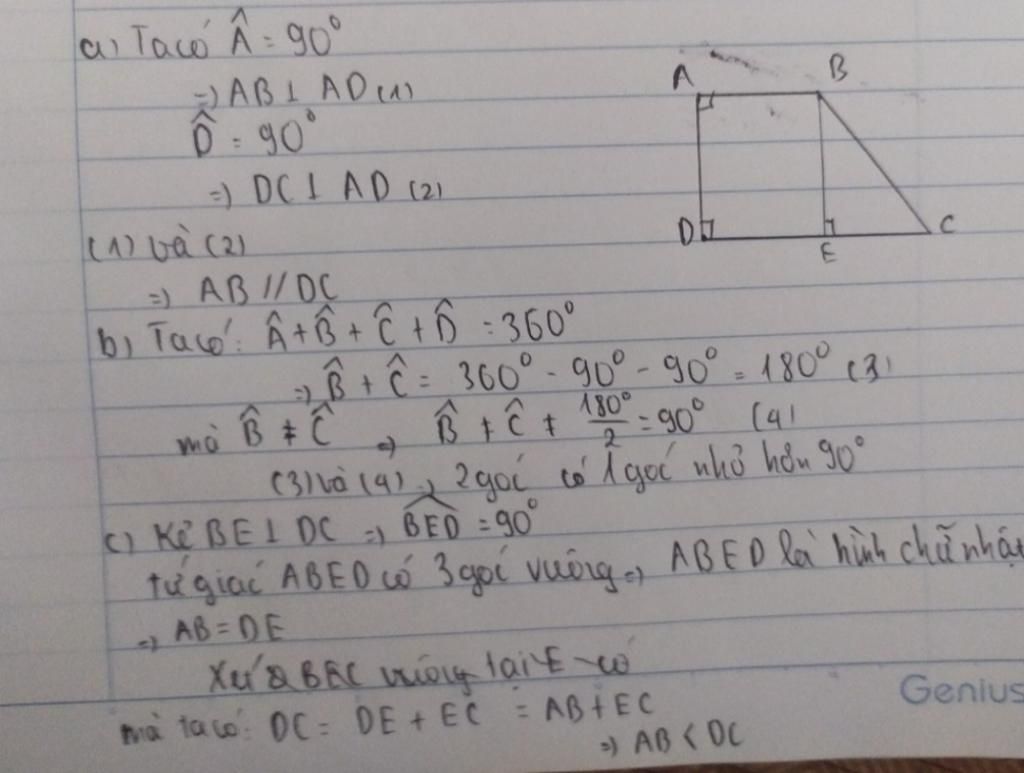 a) Ta có Â = 90°
=) AB ⊥ AD (1)
D̂ = 90°
=) DC ⊥ AD (2)
(1) và (2)
=) AB // DC
b) Ta có: Â + B̂ + Ĉ + D̂ = 360°
=) B̂ + Ĉ = 360° - 90° - 90° = 180° (3)
mà B̂ ≠ Ĉ =) B̂ ≠ Ĉ ≠ 180°/2 = 90° (4)
(3) và (4) =) 2 góc có 1 góc nhỏ hơn 90°
c) Kẻ BE ⊥ DC =) BED = 90°
tứ giác ABED có 3 góc vuông =) ABED là hình chữ nhật
=) AB = DE
Xét Δ BEC vuông tại E có
mà ta có: DC = DE + EC = AB + EC
=) AB < DC
A
B
D
E
C
Genius